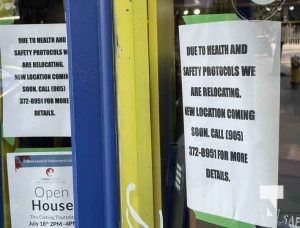 DUE TO HEALTH AND
SAFETY PROTOCOLS WE
ARE RELOCATING.
NEW LOCATION COMING
SOON. CALL (905)
372-8951 FOR MORE
DETAILS.
A New Level of Retirement Living
Open
House
This Coming Thursday
July 18th 2PM-4PM
DUE TO HEALTH AND
SAFETY PROTOCOLS WE
ARE RELOCATING.
NEW LOCATION COMING
SOON. CALL (905)
372-8951 FOR MORE
DETAILS.